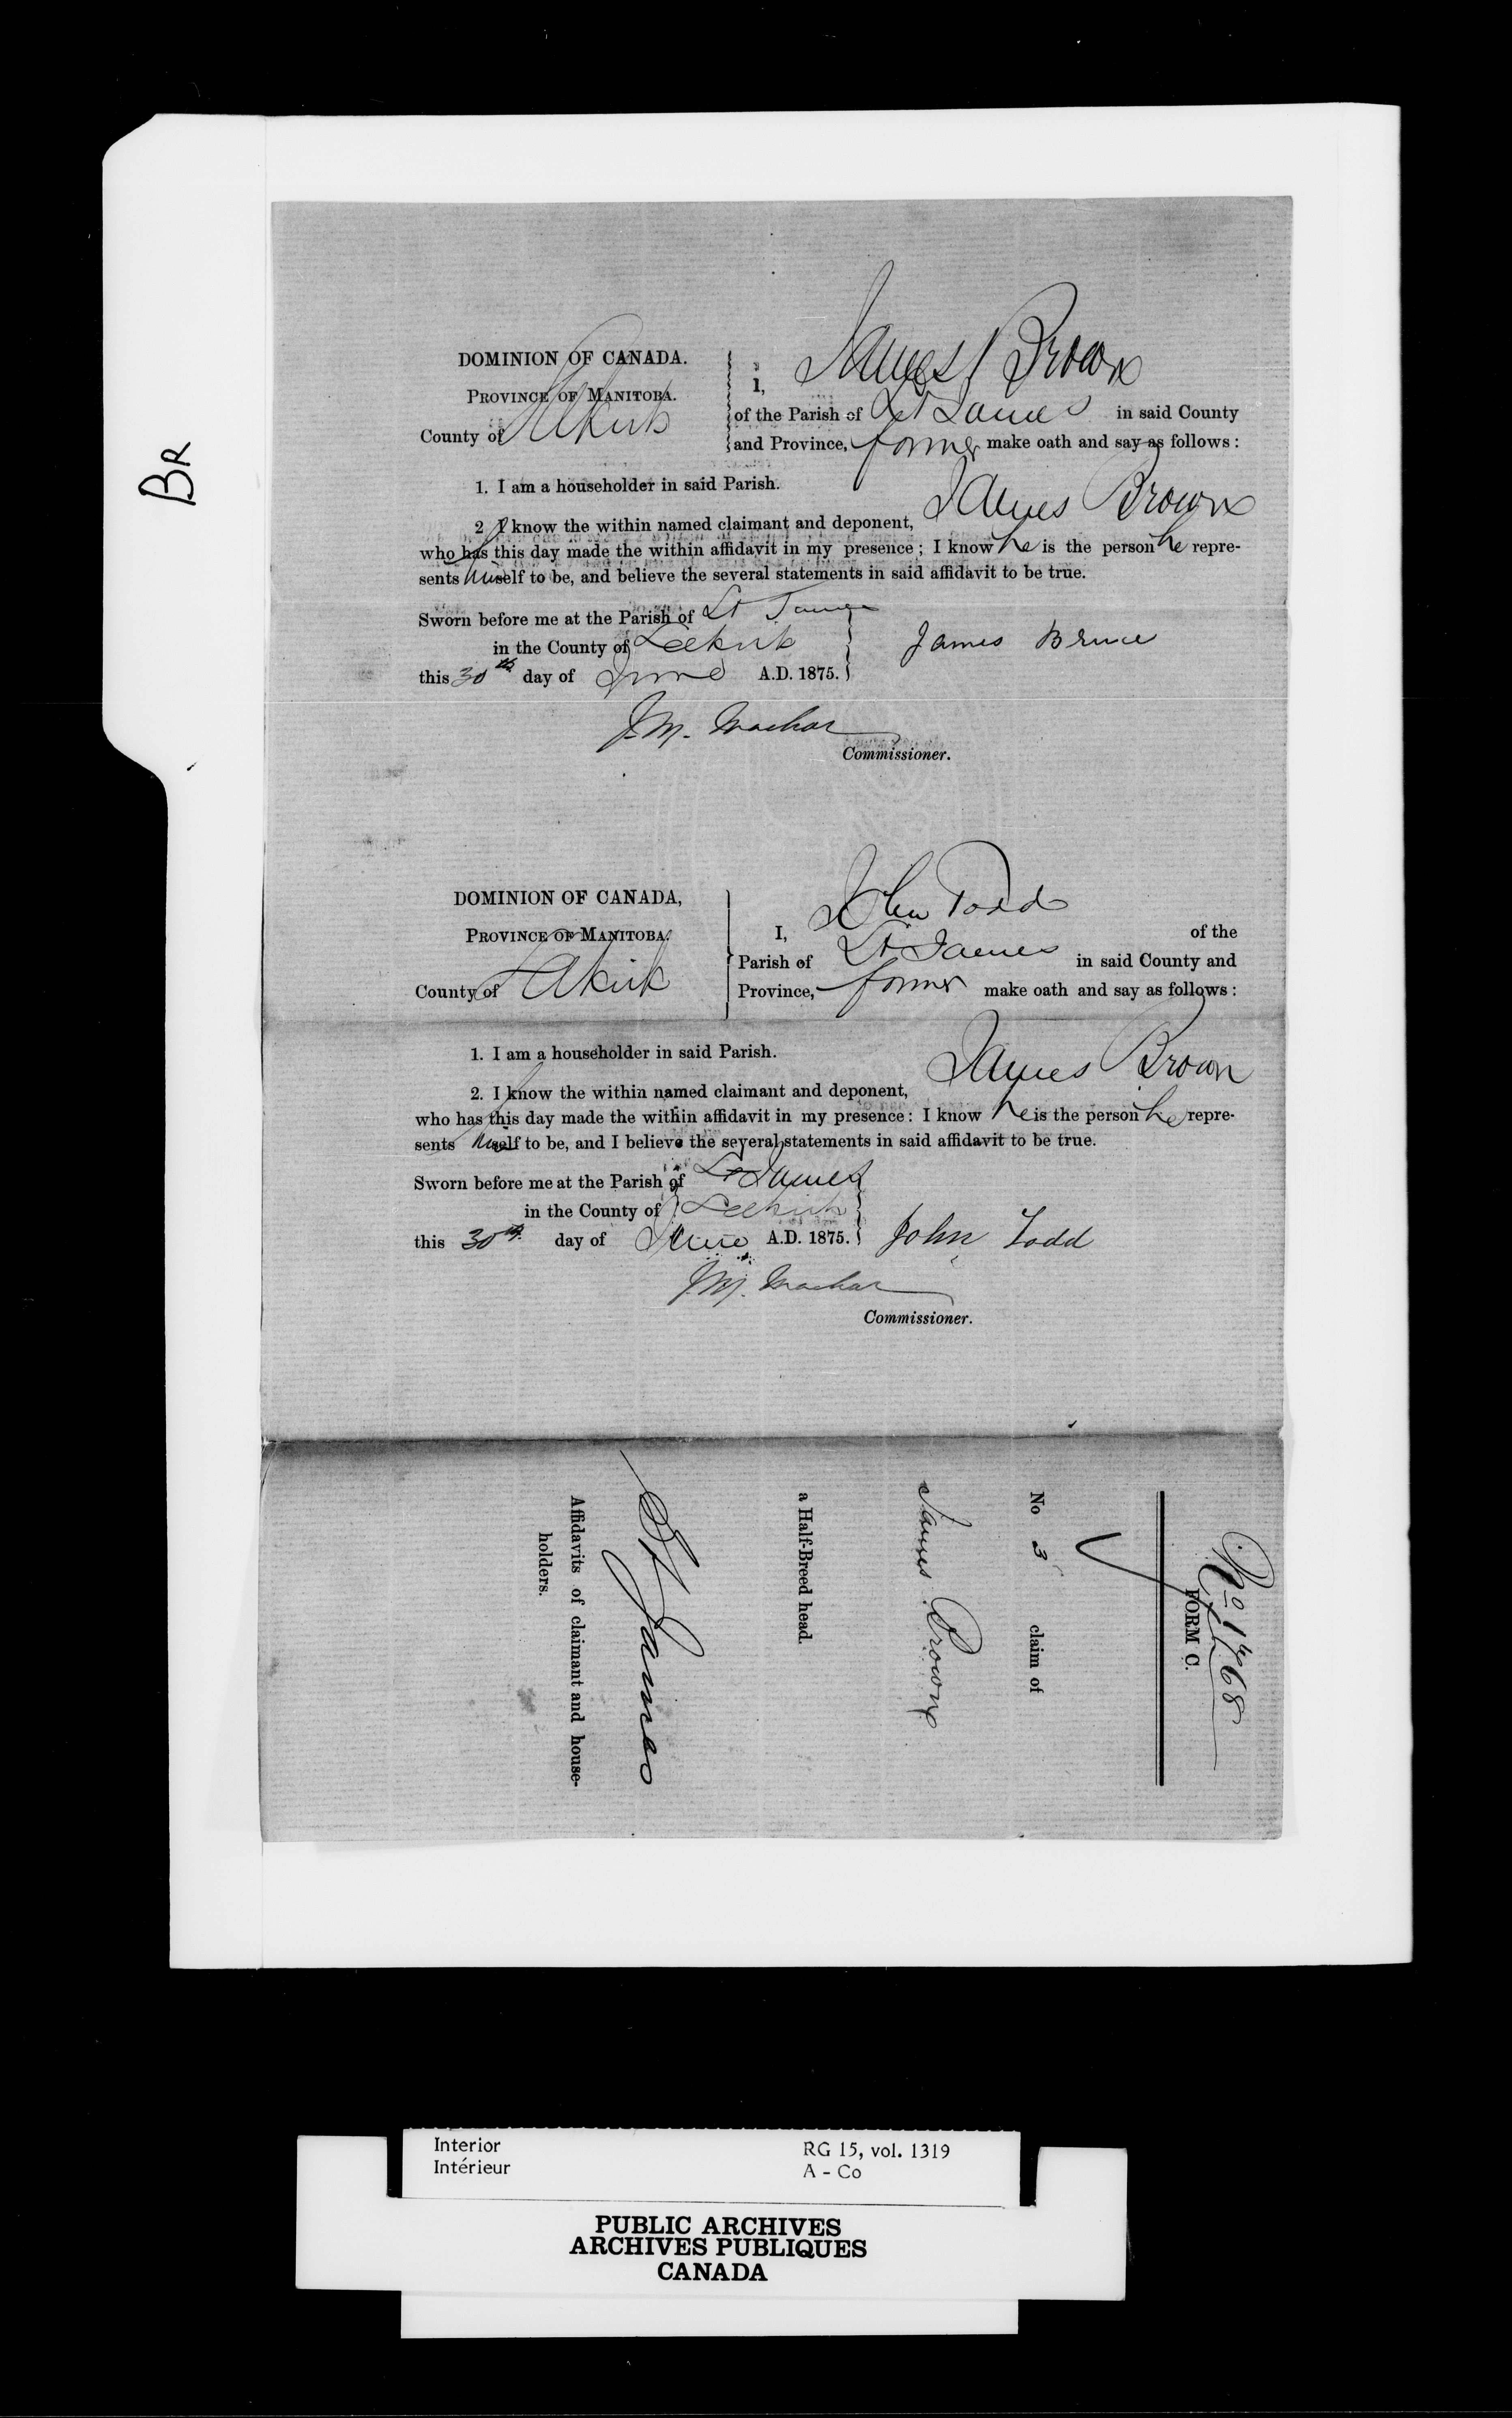 BR
DOMINION OF CANADA.
PROVINCE OF MANITOBA.
County of Selkirk
I, James Brown
of the Parish of St James in said County
and Province, farmer make oath and say as follows:
1. I am a householder in said Parish.
2 I know the within named claimant and deponent, James Brown
who has this day made the within affidavit in my presence; I know he is the person he repre-
sents himself to be, and believe the several statements in said affidavit to be true.
Sworn before me at the Parish of St James
in the County of Selkirk
this 30th day of June A.D. 1875.
James Bruce
J.M. Machar
Commissioner.
DOMINION OF CANADA,
PROVINCE OF MANITOBA.
County of Selkirk
I, John Todd of the
Parish of St James in said County and
Province, farmer make oath and say as follows:
1. I am a householder in said Parish.
2. I know the within named claimant and deponent, James Brown
who has this day made the within affidavit in my presence: I know he is the person he repre-
sents himself to be, and I believe the several statements in said affidavit to be true.
Sworn before me at the Parish of St James
in the County of Selkirk
this 30th day of June A.D. 1875.
John Todd
J.M. Machar
Commissioner.
No 1468
FORM C.
No 3 claim of
James Brown
a Half-Breed head.
St James
Affidavits of claimant and house-
holders.
Interior
Intérieur
RG 15, vol. 1319
A - Co
PUBLIC ARCHIVES
ARCHIVES PUBLIQUES
CANADA